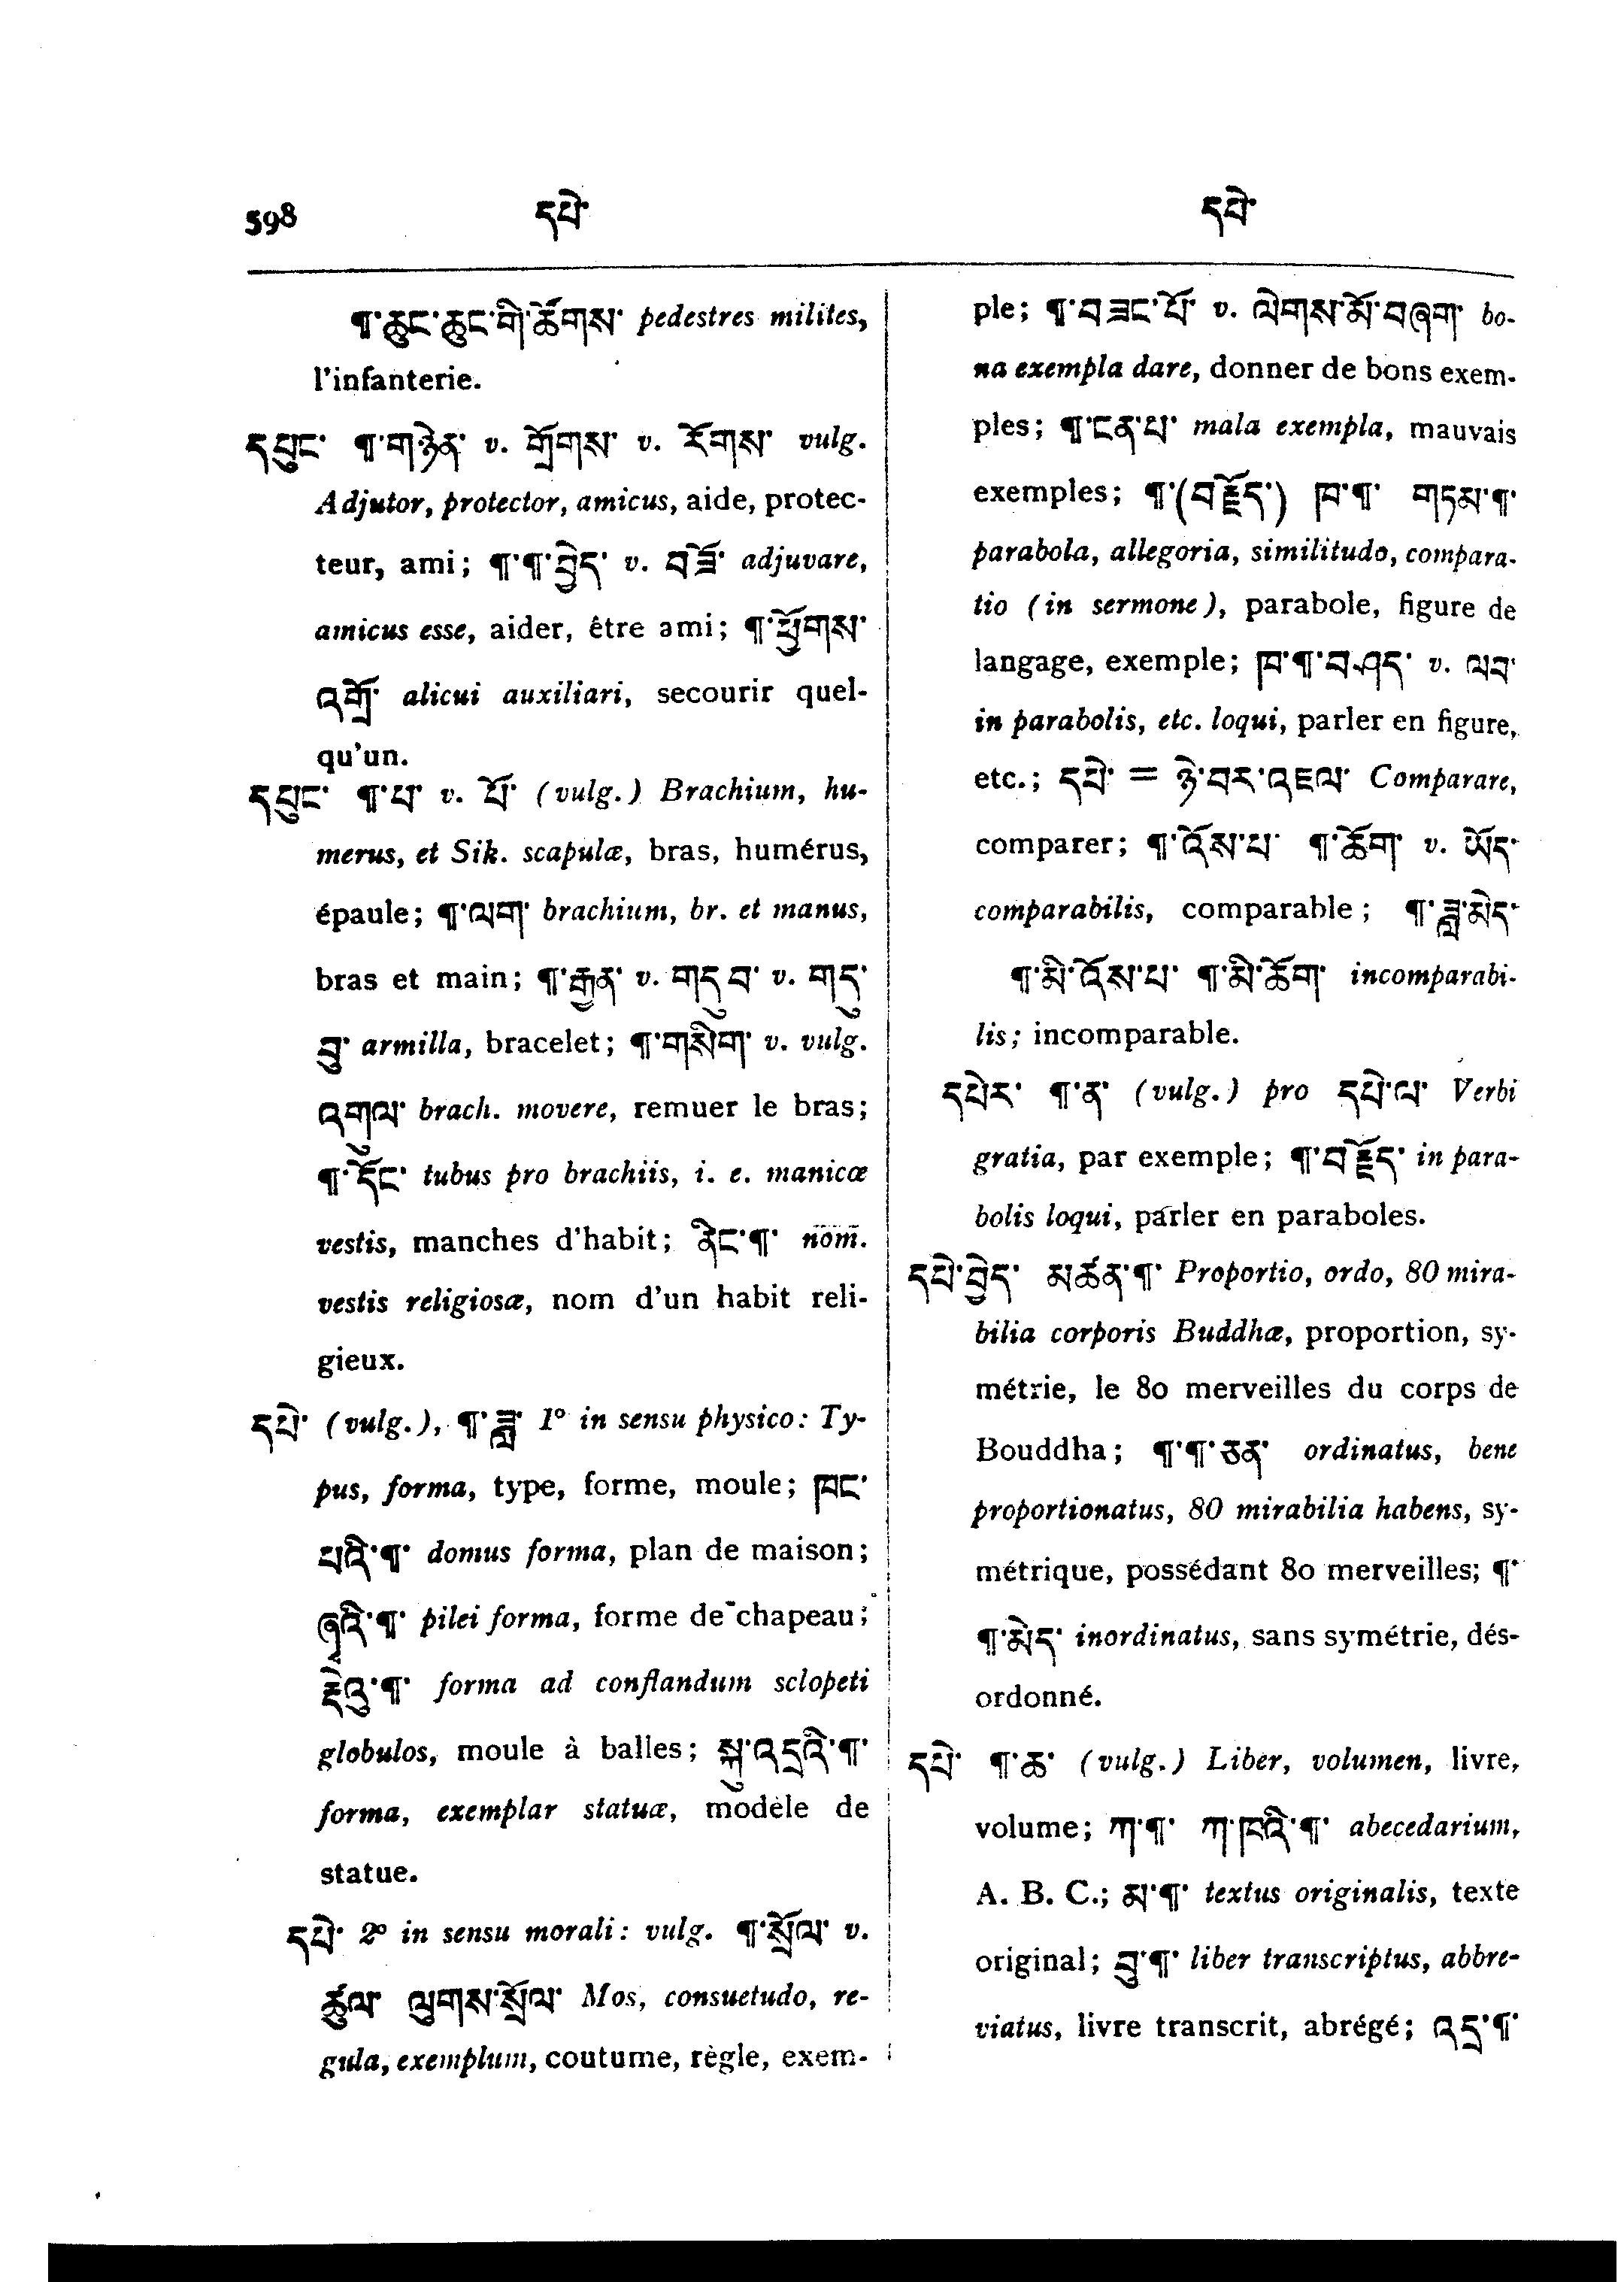 598 དཔེ་ དཔེ་
¶་ཆུང་ཆུང་གི་ཚོགས་ pedestres milites,
l'infanterie.
དཔུང་ ¶་གཉེན་ v. གྲོགས་ v. རོགས་ vulg.
Adjutor, protector, amicus, aide, protec-
teur, ami; ¶་¶་བྱེད་ v. བཟོ་ adjuvare,
amicus esse, aider, être ami; ¶་ཕྱོགས་
འགྲོ་ alicui auxiliari, secourir quel-
qu'un.
དཔུང་ ¶་པ་ v. པོ་ (vulg.) Brachium, hu-
merus, et Sik. scapulæ, bras, humérus,
épaule; ¶་ལག་ brachium, br. et manus,
bras et main; ¶་རྒྱན་ v. གདུ བ་ v. གདུ་
བུ་ armilla, bracelet; ¶་གསིག་ v. vulg.
འགུལ་ brach. movere, remuer le bras;
¶་དོང་ tubus pro brachiis, i. e. manicæ
vestis, manches d'habit; རྡིང་¶་ nom.
vestis religiosæ, nom d'un habit reli-
gieux.
དཔེ་ (vulg.), ¶་ཟླ་ 1º in sensu physico: Ty-
pus, forma, type, forme, moule; ཁང་
པའི་¶་ domus forma, plan de maison;
ཞྭའི་¶་ pilei forma, forme de chapeau;
རྡེའུ་¶་ forma ad conflandum sclopeti
globulos, moule à balles; སྐུ་འདྲའི་¶་
forma, exemplar statuæ, modèle de
statue.
དཔེ་ 2º in sensu morali: vulg. ¶་སྲོལ་ v.
ཚུལ་ ལུགས་སྲོལ་ Mos, consuetudo, re-
gula, exemplum, coutume, règle, exem-
ple; ¶་བཟང་པོ་ v. ལེགས་མོ་བཞག་ bo-
na exempla dare, donner de bons exem-
ples; ¶་ངན་པ་ mala exempla, mauvais
exemples; ¶་(བརྗོད་) ཁ་¶་ གཏམ་¶་
parabola, allegoria, similitudo, compara-
tio (in sermone), parabole, figure de
langage, exemple; ཁ་¶་བཤད་ v. ལབ་
in parabolis, etc. loqui, parler en figure,
etc.; དཔེ་ = ཉེ་བར་འཇལ་ Comparare,
comparer; ¶་འོས་པ་ ¶་ཆོག་ v. ཡོད་
comparabilis, comparable; ¶་ཟླ་མེད་
¶་མི་འོས་པ་ ¶་མི་ཆོག་ incomparabi-
lis; incomparable.
དཔེར་ ¶་ན་ (vulg.) pro དཔེ་ལ་ Verbi
gratia, par exemple; ¶་བརྗོད་ in para-
bolis loqui, parler en paraboles.
དཔེ་བྱེད་ མཚན་¶་ Proportio, ordo, 80 mira-
bilia corporis Buddhæ, proportion, sy-
métrie, le 80 merveilles du corps de
Bouddha; ¶་¶་ཅན་ ordinatus, bene
proportionatus, 80 mirabilia habens, sy-
métrique, possédant 80 merveilles; ¶་
¶་མེད་ inordinatus, sans symétrie, dés-
ordonné.
དཔེ་ ¶་ཆ་ (vulg.) Liber, volumen, livre,
volume; ཀ་¶་ ཀ་ཁའི་¶་ abecedarium,
A. B. C.; མ་¶་ textus originalis, texte
original; བུ་¶་ liber transcriptus, abbre-
viatus, livre transcrit, abrégé; འདྲ་¶་